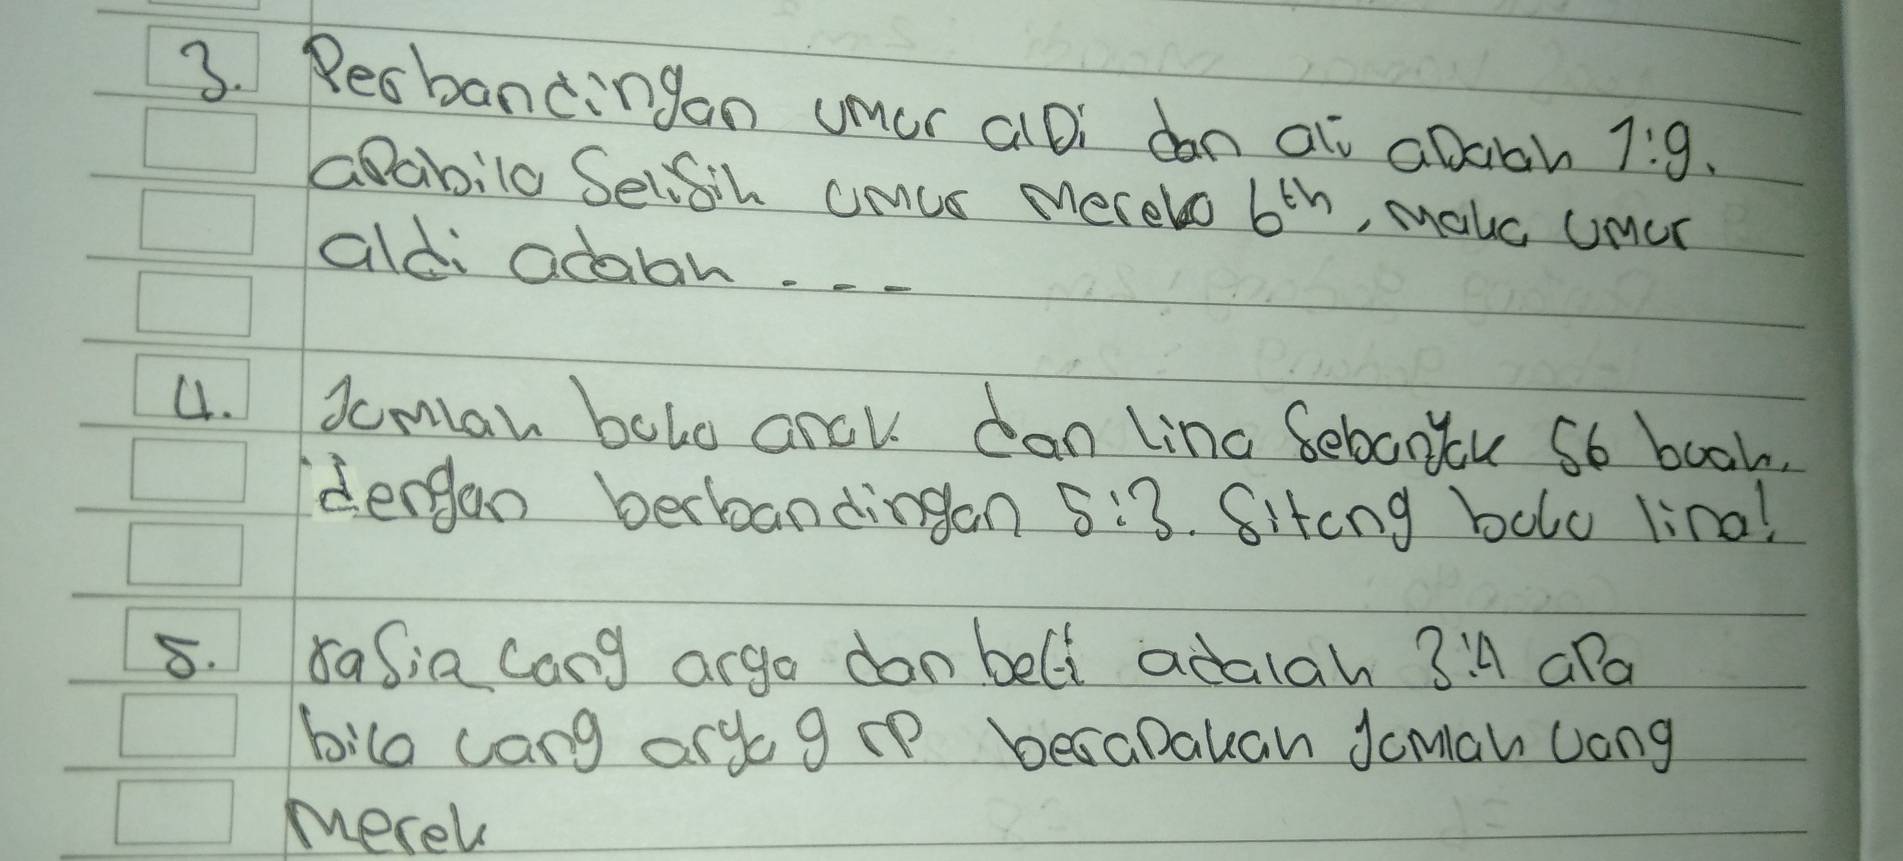 3. Perbandingan umur alDi dan ali aDalah 7:9.
aPabila Selisih umur mereka 6th, maka umur
aldi adalah . - - -
4. Jumlah buku anak dan lina Sebanyak 56 buah.
dengan berbandingan 5:3. Hitung buku lina!
5. rasia uang arga dan beli adalah 3:4 aPa
bila uang arga 9 rp beraDakah Jumlah uang
merek